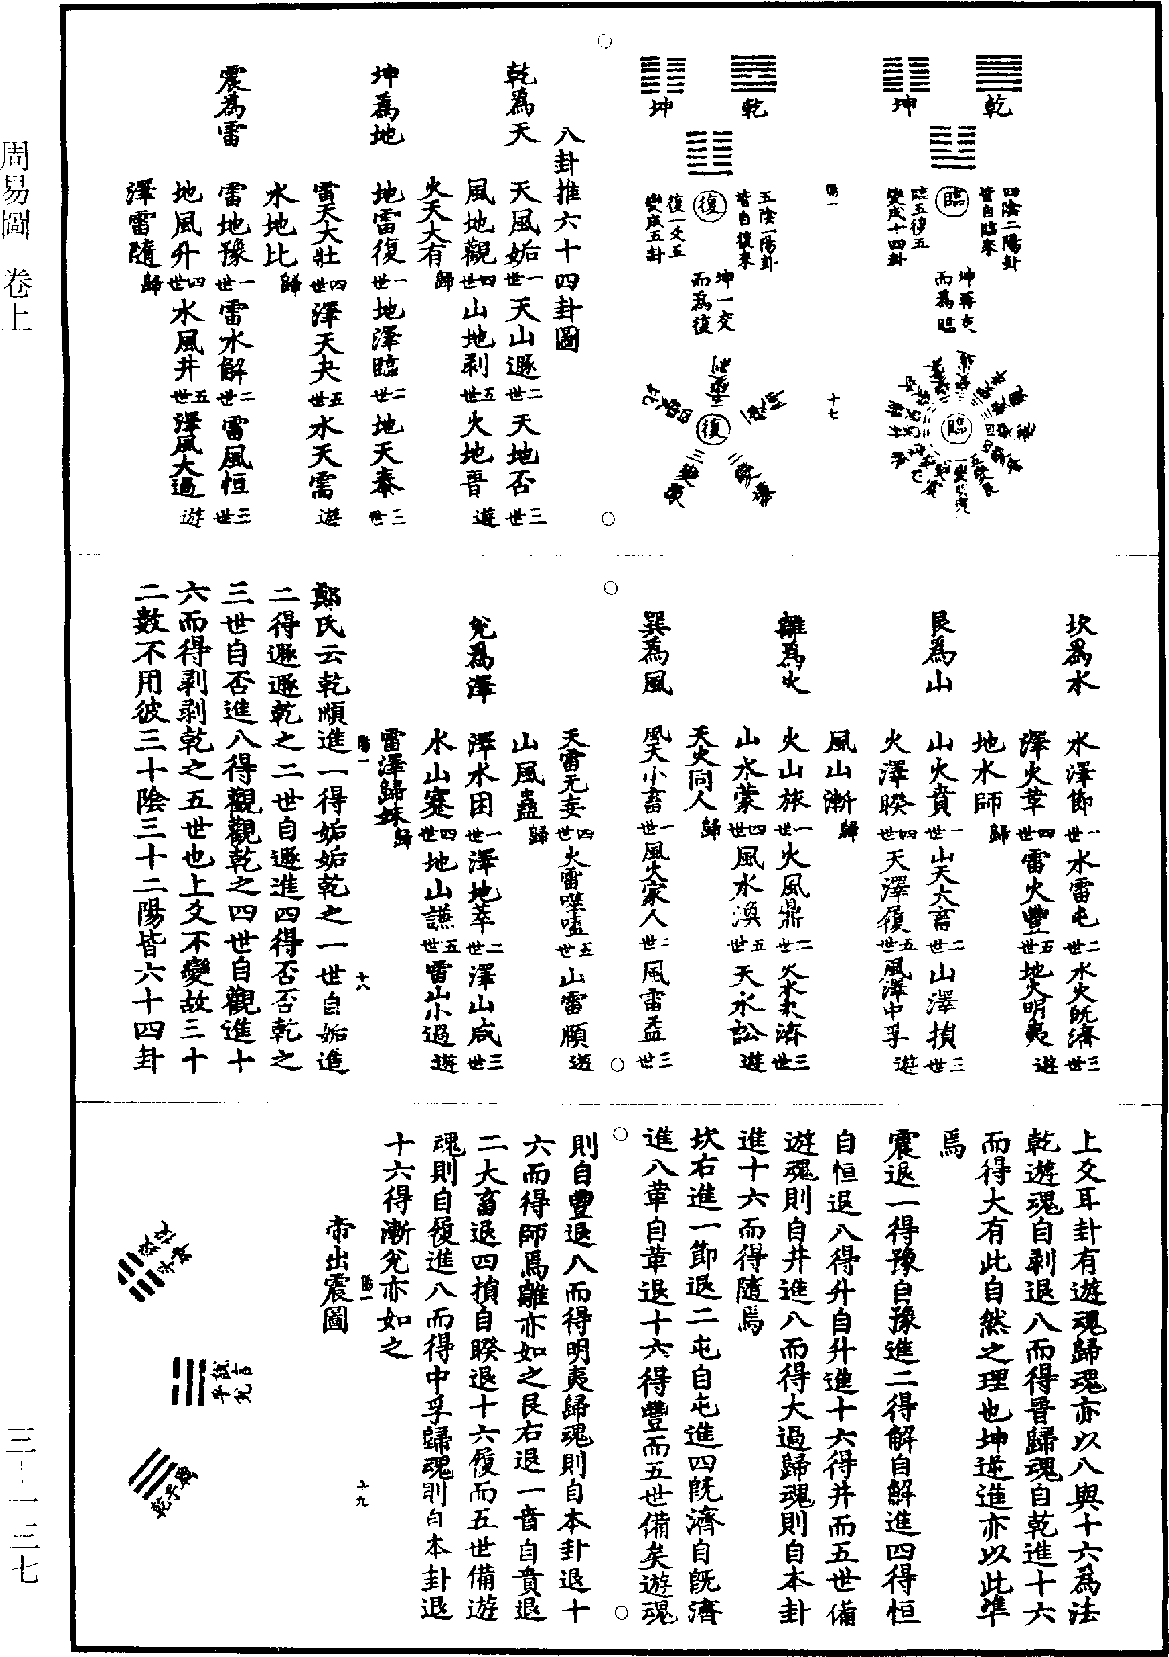 周易圖 卷上
三－一三七
乾
坤
四陰二陽卦
皆自臨來
臨
臨五復五
變成十四卦
而爲臨
臨
乾
坤
五陰一陽卦
皆自復來
復
復一爻五
變成五卦
坤一交
而爲復
復
十七
八卦推六十四卦圖
乾爲天
天風姤一世天山遯二世天地否三世
風地觀四世山地剥五世火地晋遊
火天大有歸
坤爲地
地雷復一世地澤臨二世地天泰三世
雷天大壯四世澤天夬五世水天需遊
水地比歸
震爲雷
雷地豫一世雷水解二世雷風恒三世
地風升四世水風井五世澤風大過遊
澤雷隨歸
坎爲水
水澤節一世水雷屯二世水火旣濟三世
澤火革四世雷火豐五世地火明夷遊
地水師歸
艮爲山
山火賁一世山天大畜二世山澤損三世
火澤睽四世天澤履五世風澤中孚遊
風山漸歸
離爲火
火山旅一世火風鼎二世火水未濟三世
山水蒙四世風水渙五世天水訟遊
天火同人歸
巽爲風
風天小畜一世風火家人二世風雷益三世
天雷无妄四世火雷噬嗑五世山雷頤遊
山風蠱歸
兌爲澤
澤水困一世澤地萃二世澤山咸三世
水山蹇四世地山謙五世雷山小過遊
雷澤歸妹歸
十八
鄭氏云乾順進一得姤姤乾之一世自姤進
二得遯遯乾之二世自遯進四得否否乾之
三世自否進八得觀觀乾之四世自觀進十
六而得剥剥乾之五世也上爻不變故三十
二數不用彼三十陰三十二陽皆六十四卦
上爻耳卦有遊魂歸魂亦以八與十六爲法
乾遊魂自剥退八而得晋歸魂自乾進十六
而得大有此自然之理也坤逆進亦以此準
焉
震退一得豫自豫進二得解自解進四得恒
自恒退八得升自升進十六得井而五世備
遊魂則自井進八而得大過歸魂則自本卦
進十六而得隨焉
坎右進一節退二屯自屯進四旣濟自旣濟
進八革自革退十六得豐而五世備矣遊魂
則自豐退八而得明夷歸魂則自本卦退十
六而得師焉離亦如之艮右退一音自賁退
二大畜退四損自睽退十六履而五世備遊
魂則自履進八而得中孚歸魂則自本卦退
十六得漸兌亦如之
十九
帝出震圖